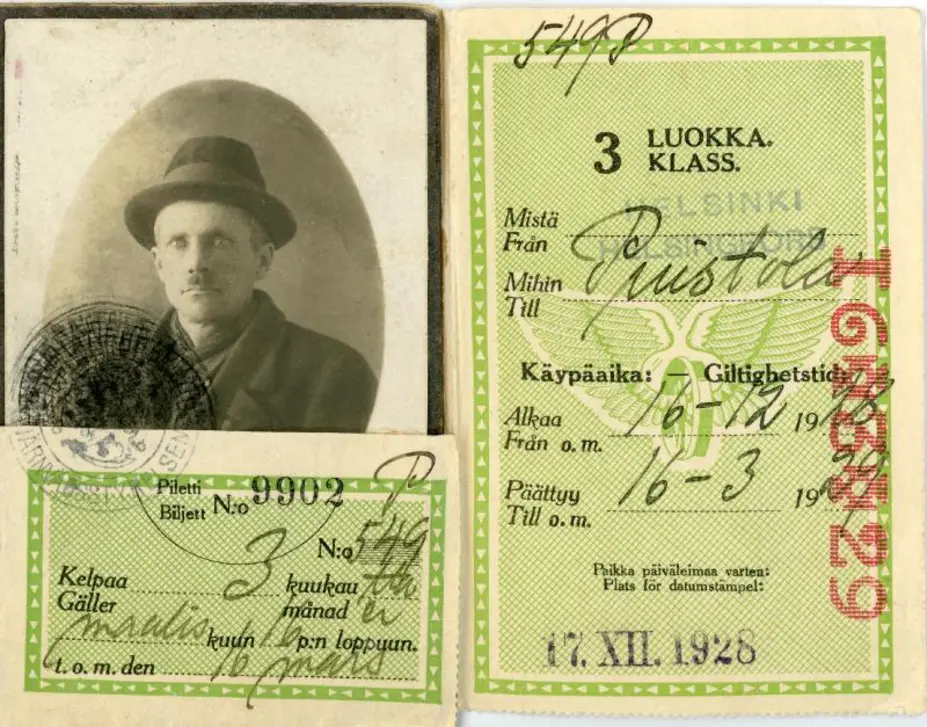 Piletti
Biljett N:o 9902
P
N:o 549
Kelpaa 3 kuukautta
Gäller månader
maalis kuun 16 p:n loppuun.
t. o. m. den 16 mars
549 P
3 LUOKKA.
KLASS.
HELSINKI
HELSINGFORS
Mistä
Från
Mihin Puistola
Till
Käypäaika: — Giltighetstid:
Alkaa 16-12 1928
Från o. m.
Päättyy 16-3 1929
Till o. m.
Paikka päiväleimaa varten:
Plats för datumstämpel:
17. XII. 1928